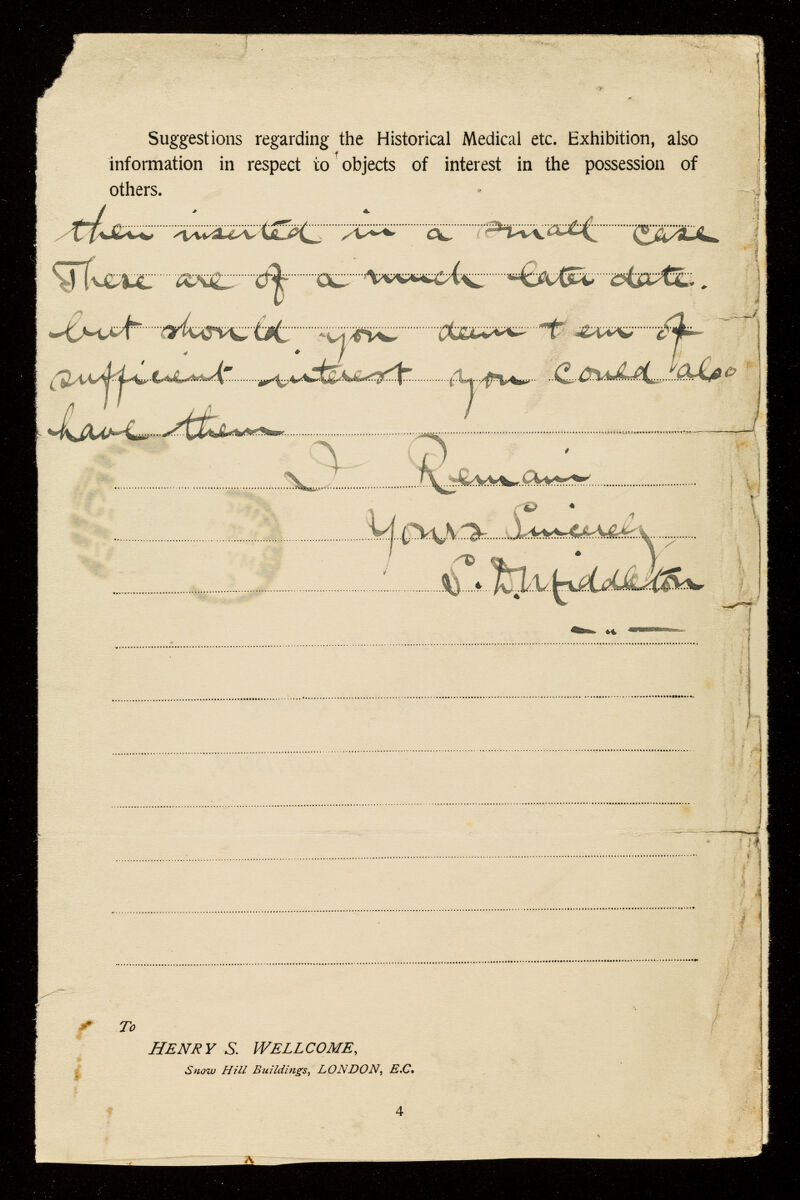 Suggestions regarding the Historical Medical etc. Exhibition, also
information in respect to objects of interest in the possession of
others.
then inserted in a small case
These are of a much later date.
but should you deem t em of
sufficient interest you could also
have them
I Remain
Yours Sincerely
S. D. Middleton
To
HENRY S. WELLCOME,
Snow Hill Buildings, LONDON, E.C.
4